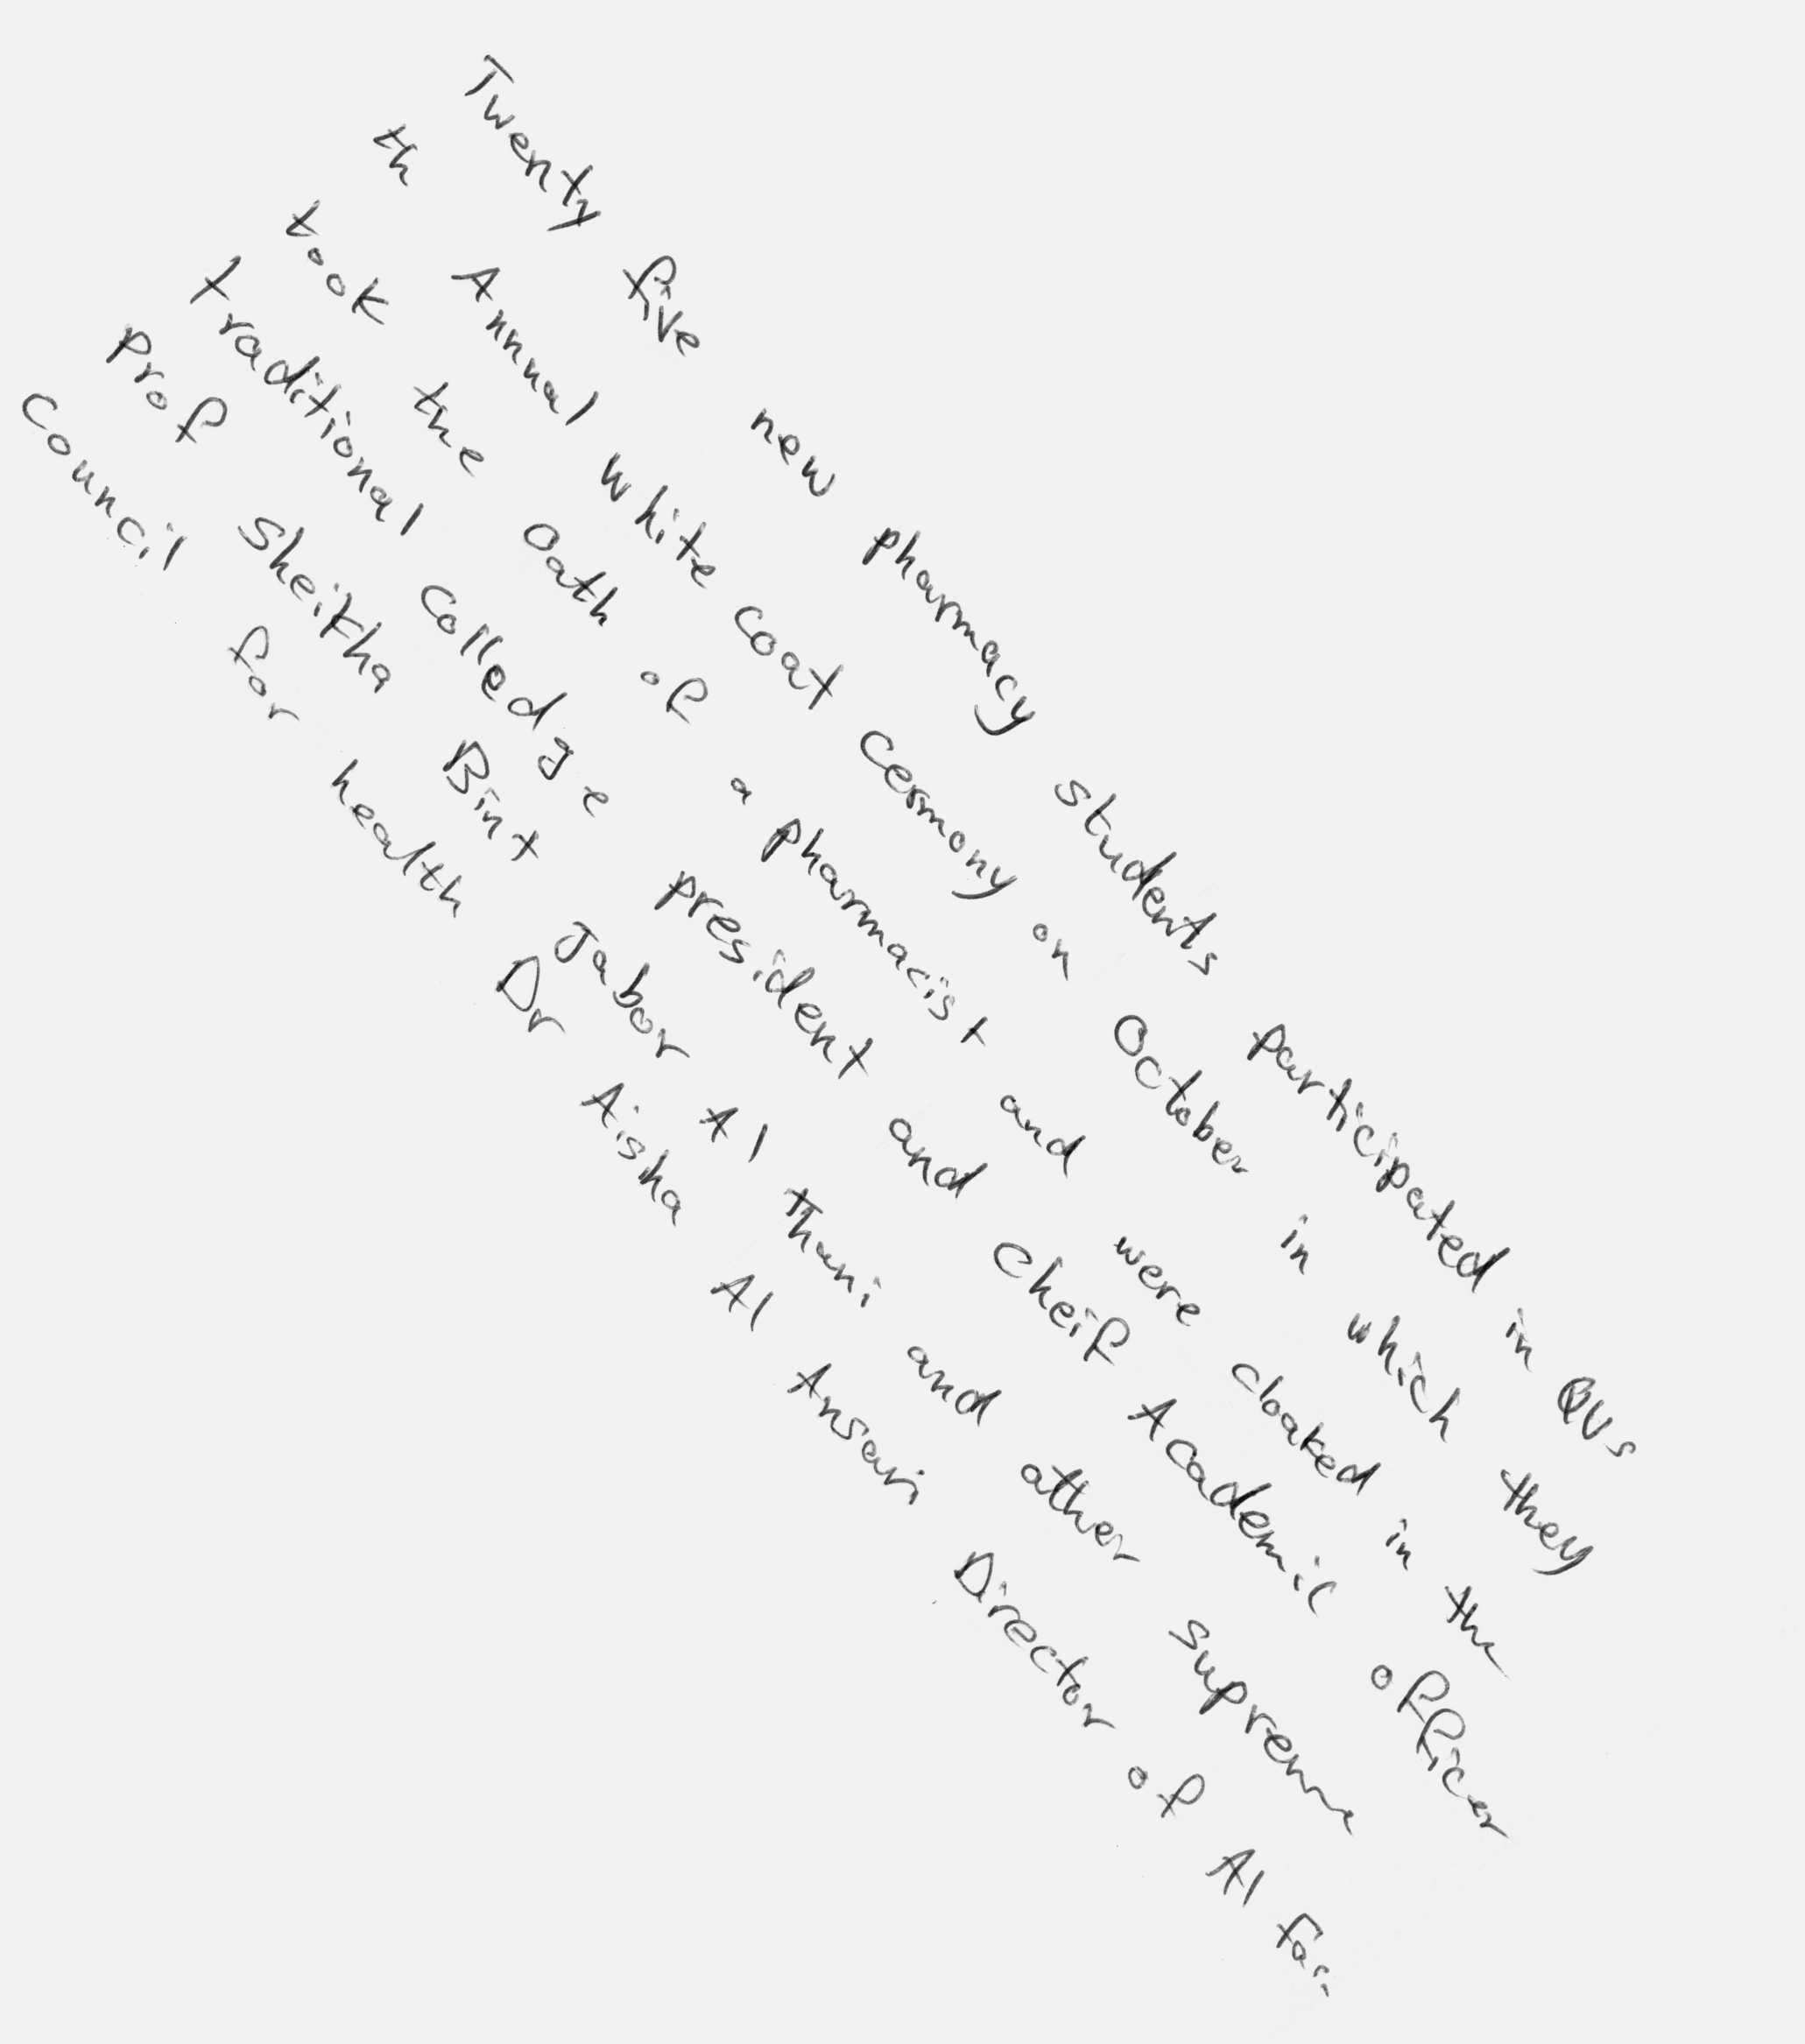 Twenty five new pharmacy students participated in QUs
th Annual White Coat Cermony on October in which they
took the Oath of a pharmacist and were cloaked in the
traditional Colledge president and Cheif Academic officer
Prof Sheikha Bint Jabor Al Thani and other Supreme
Council for health Dr Aisha Al Ansari Director of Al